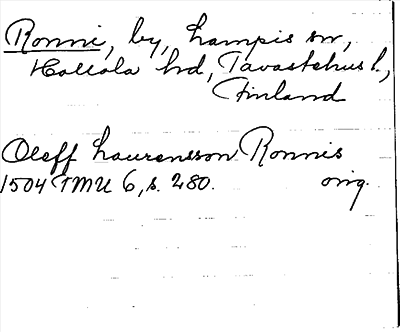 Ronni, by, Lampis sn,
Hollola hd, Tavastehus l.,
Finland
Oleff Laurensson Ronnis
1504 TMU 6, s. 280. orig.